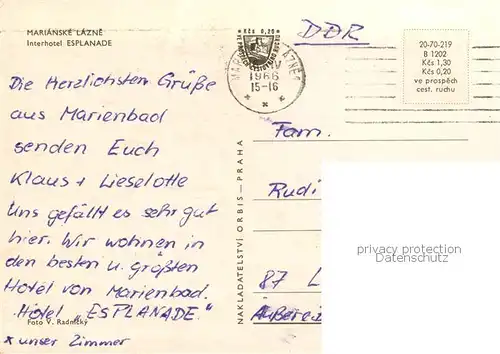 MARIÁNSKÉ LÁZNĚ
Interhotel ESPLANADE
Die Herzlichsten Grüße
aus Marienbad
senden Euch
Klaus + Lieselotte
Uns gefällt es sehr gut
hier. Wir wohnen in
den besten u. größten
Hotel von Marienbad.
Hotel „ESPLANADE."
Foto V. Radnický
x unser Zimmer
NAKLADATELSTVÍ ORBIS – PRAHA
Kčs 0,20
1966
15-16
DDR
20-70-219
B 1202
Kčs 1,30
Kčs 0,20
ve prospěch
cest. ruchu
Fam.
Rudi
87 L
privacy protection
Datenschutz